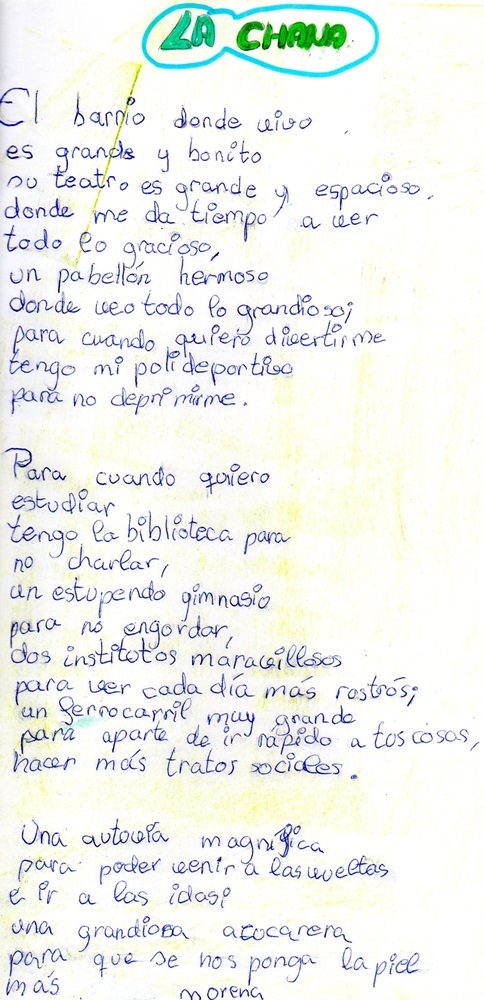 LA CHANA
El barrio donde vivo
es grande y bonito
su teatro es grande y espacioso.
donde me da tiempo a ver
todo lo gracioso,
un pabellón hermoso
donde veo todo lo grandioso;
para cuando quiero divertirme
tengo mi polideportivo
para no deprimirme.
Para cuando quiero
estudiar
tengo la biblioteca para
no charlar,
un estupendo gimnasio
para no engordar,
dos institutos maravillosos
para ver cada día más rostros;
un ferrocarril muy grande
para aparte de ir rápido a tus cosas,
hacer más tratos sociales.
Una autovía magnífica
para poder venir a las vueltas
e ir a las idas;
una grandiosa azucarera
para que se nos ponga la piel
más morena